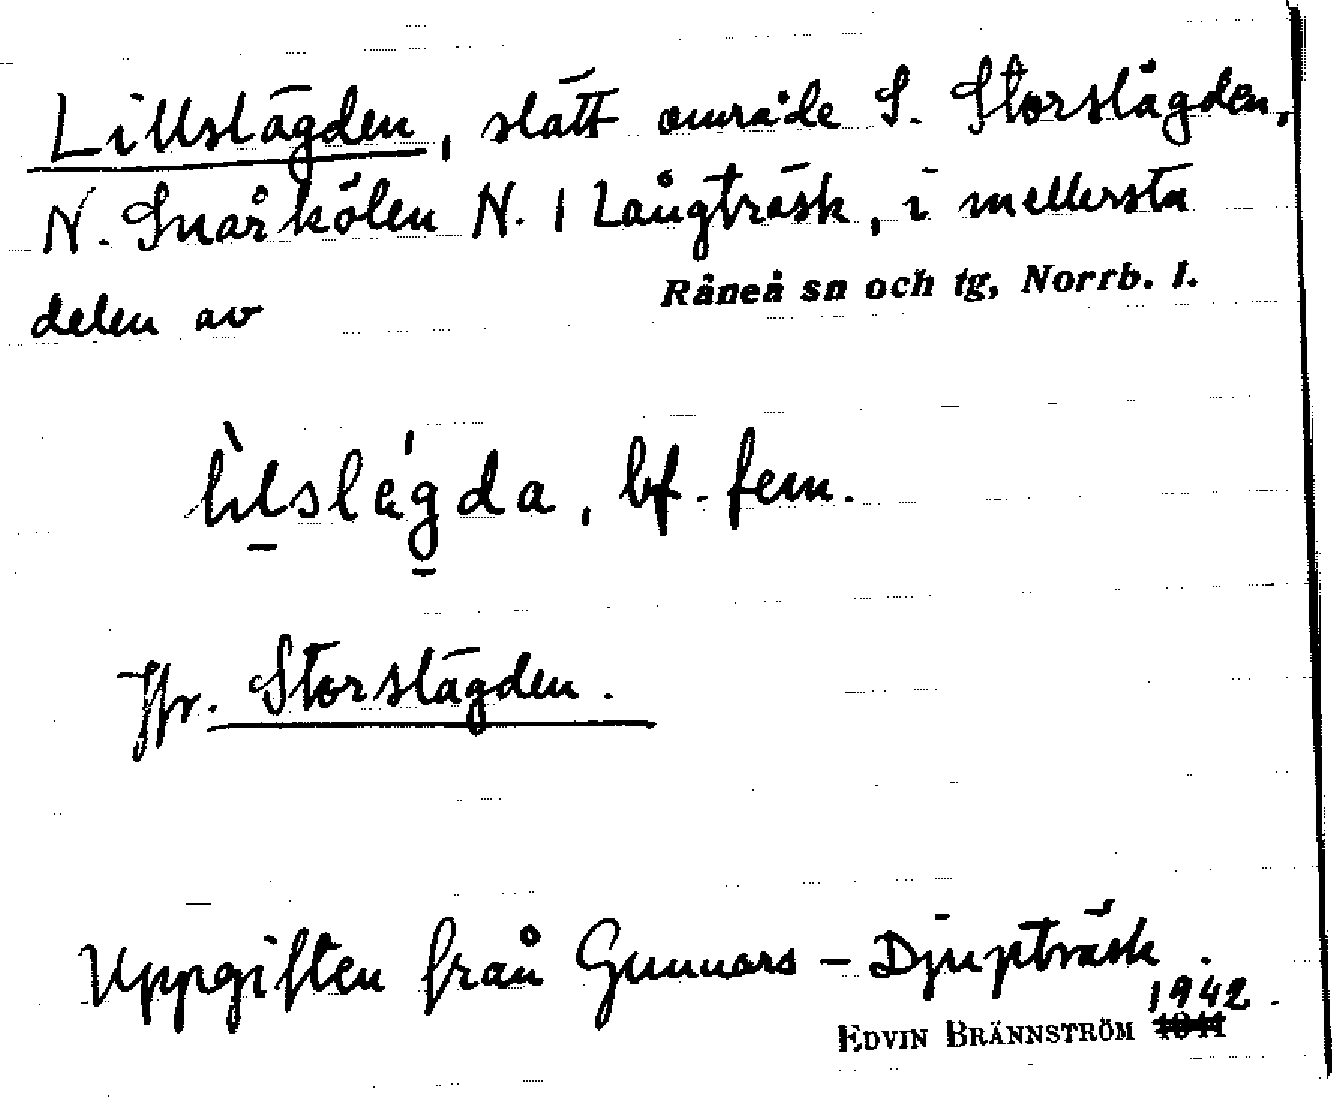 Lillslägden, slått område S. Storslägden,
N. Snårkölen N. I Långträsk, i mellersta
delen av Råneå sn och tg, Norrb. l.
lìlslégda, bf. fem.
Jfr. Storslägden.
Uppgiften från Gunnars - Djupträsk.
1942.
EDVIN BRÄNNSTRÖM 1941